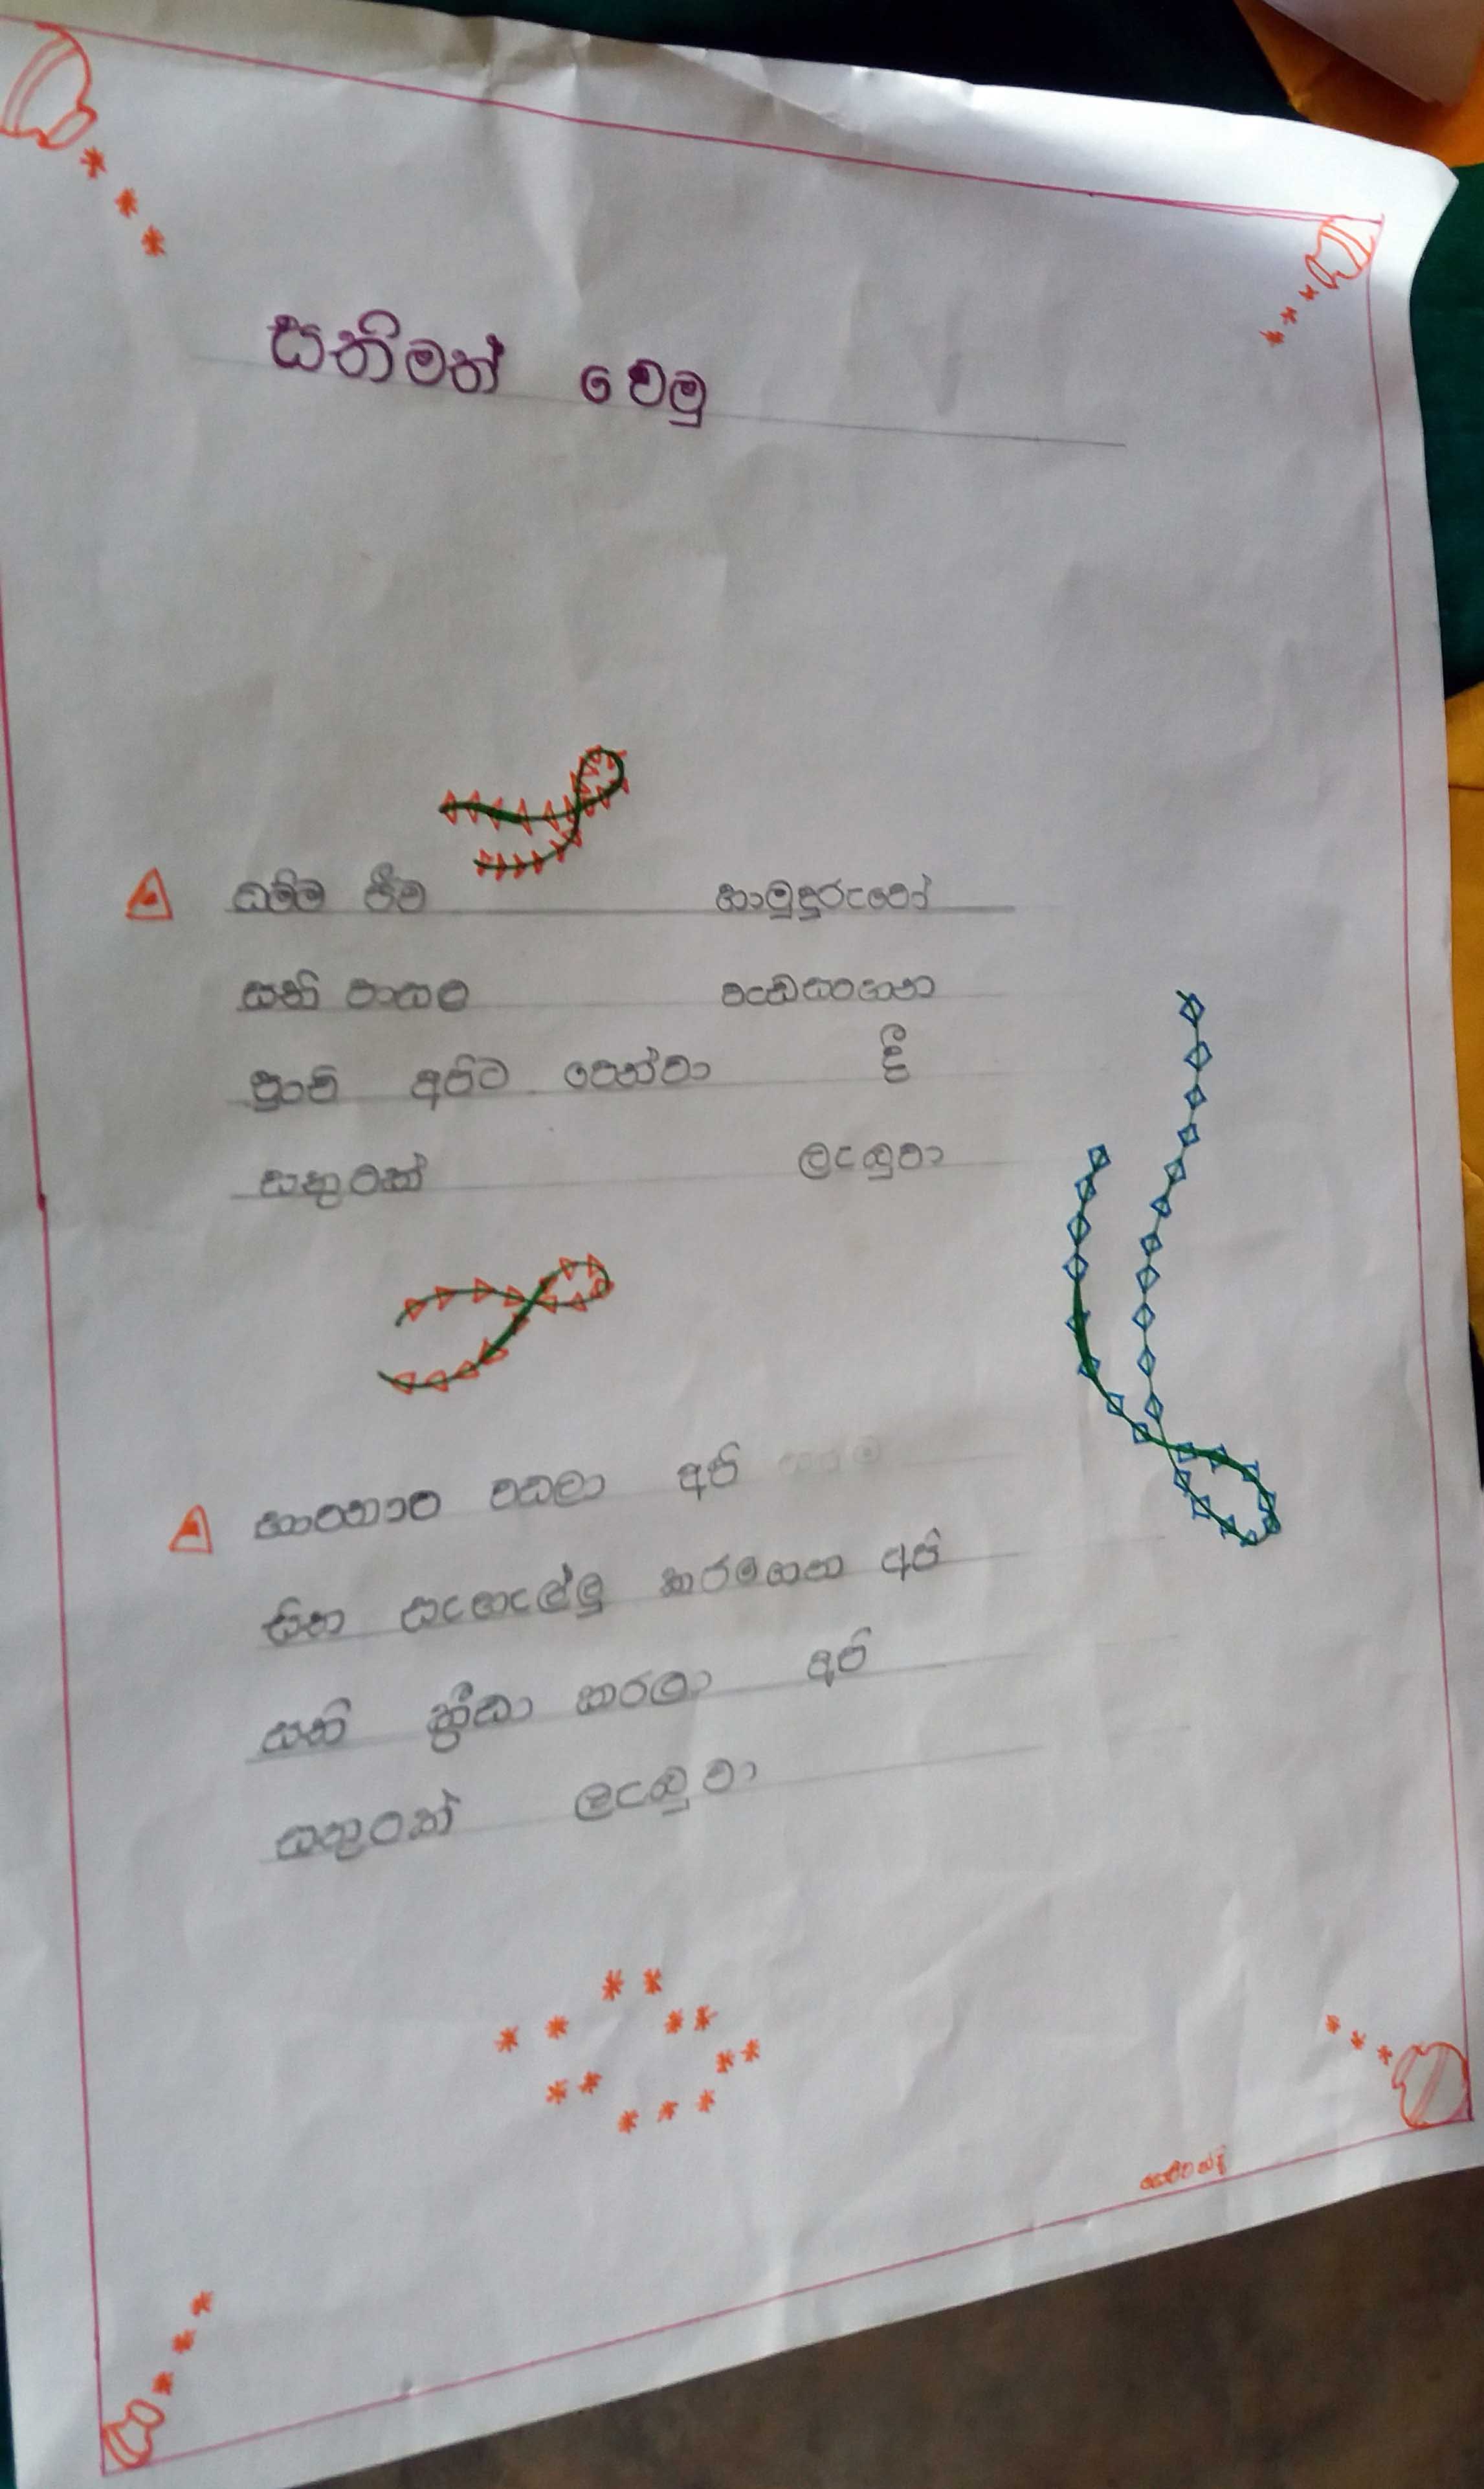 සතිමත් වෙමු
ධම්ම ජීව හාමුදුරුවෝ
සති පාසල වැඩසටහන
පුංචි අපිට පෙන්වා දී
සතුටක් ලැබුවා
භාවනාව වඩලා අපි
සිත සැහැල්ලු කරගෙන අපි
සති ක්‍රීඩා කරලා අපි
සතුටක් ලැබුවා